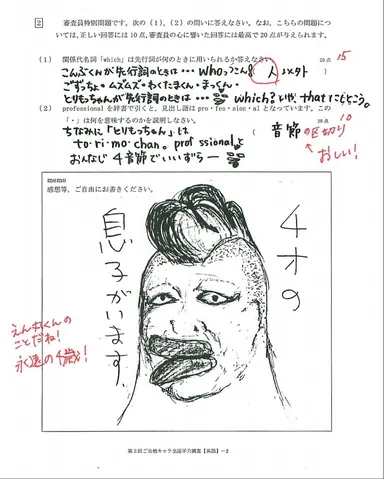 2 審査員特別問題です。次の(1),(2)の問いに答えなさい。なお、こちらの問題につ
いては、正しい回答には10点、審査員の心に響いた回答には最高で20点が与えられます。
(1) 関係代名詞「which」は先行詞が何のときに用いられるか答えなさい。 20点 15
こんぶくんが先行詞のときは…whoっつこん 人 以外
ごずっちょ・ムズムズ・わくたまくん・まっくん・
とりもっちゃんが先行詞のときは… which? どや、thatにもどこう。
(2) professionalを辞書で引くと、見出し語はpro・fes・sion・alとなっています。この
「・」は何を意味するのかを説明しなさい。 20点 10
ちなみに「とりもっちゃん」は
to・ri・mo・chan。prof ssionalと
おんなじ4音節でいいずらー
( 音節の区切り
おしい!
memo
感想等、ご自由にお書きください。
4才の
息子がいます。
えんむくんの
ことだね!
永遠の4歳!
第2回ご当地キャラ全国学力調査【英語】-2